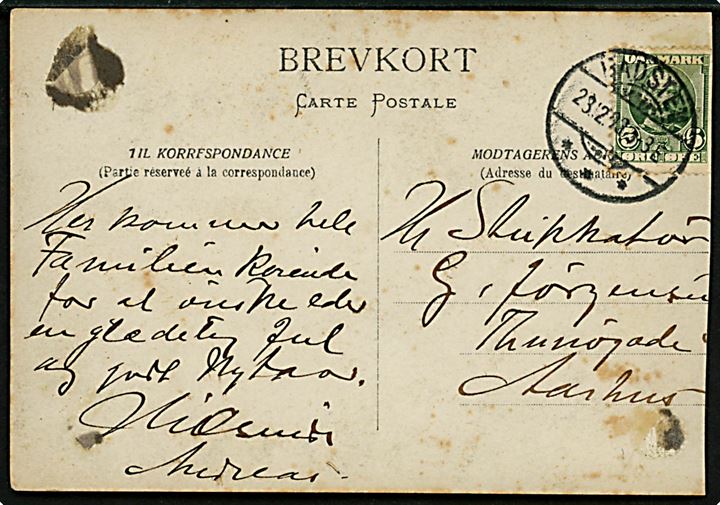 BREVKORT
CARTE POSTALE
TIL KORRESPONDANCE
(Partie réserveé à la correspondance)
Her kommer hele
Familien kørende
for at ønske eder
en glædelig Jul
og godt Nytaar.
Hilsener
Andreas.
MODTAGERENS
(Adresse du destinataire)
Hr Stukkatør
G. Jørgensen
Thunøgade
Aarhus
DANMARK
HADSTEN
23.12.
5 ØRE 5